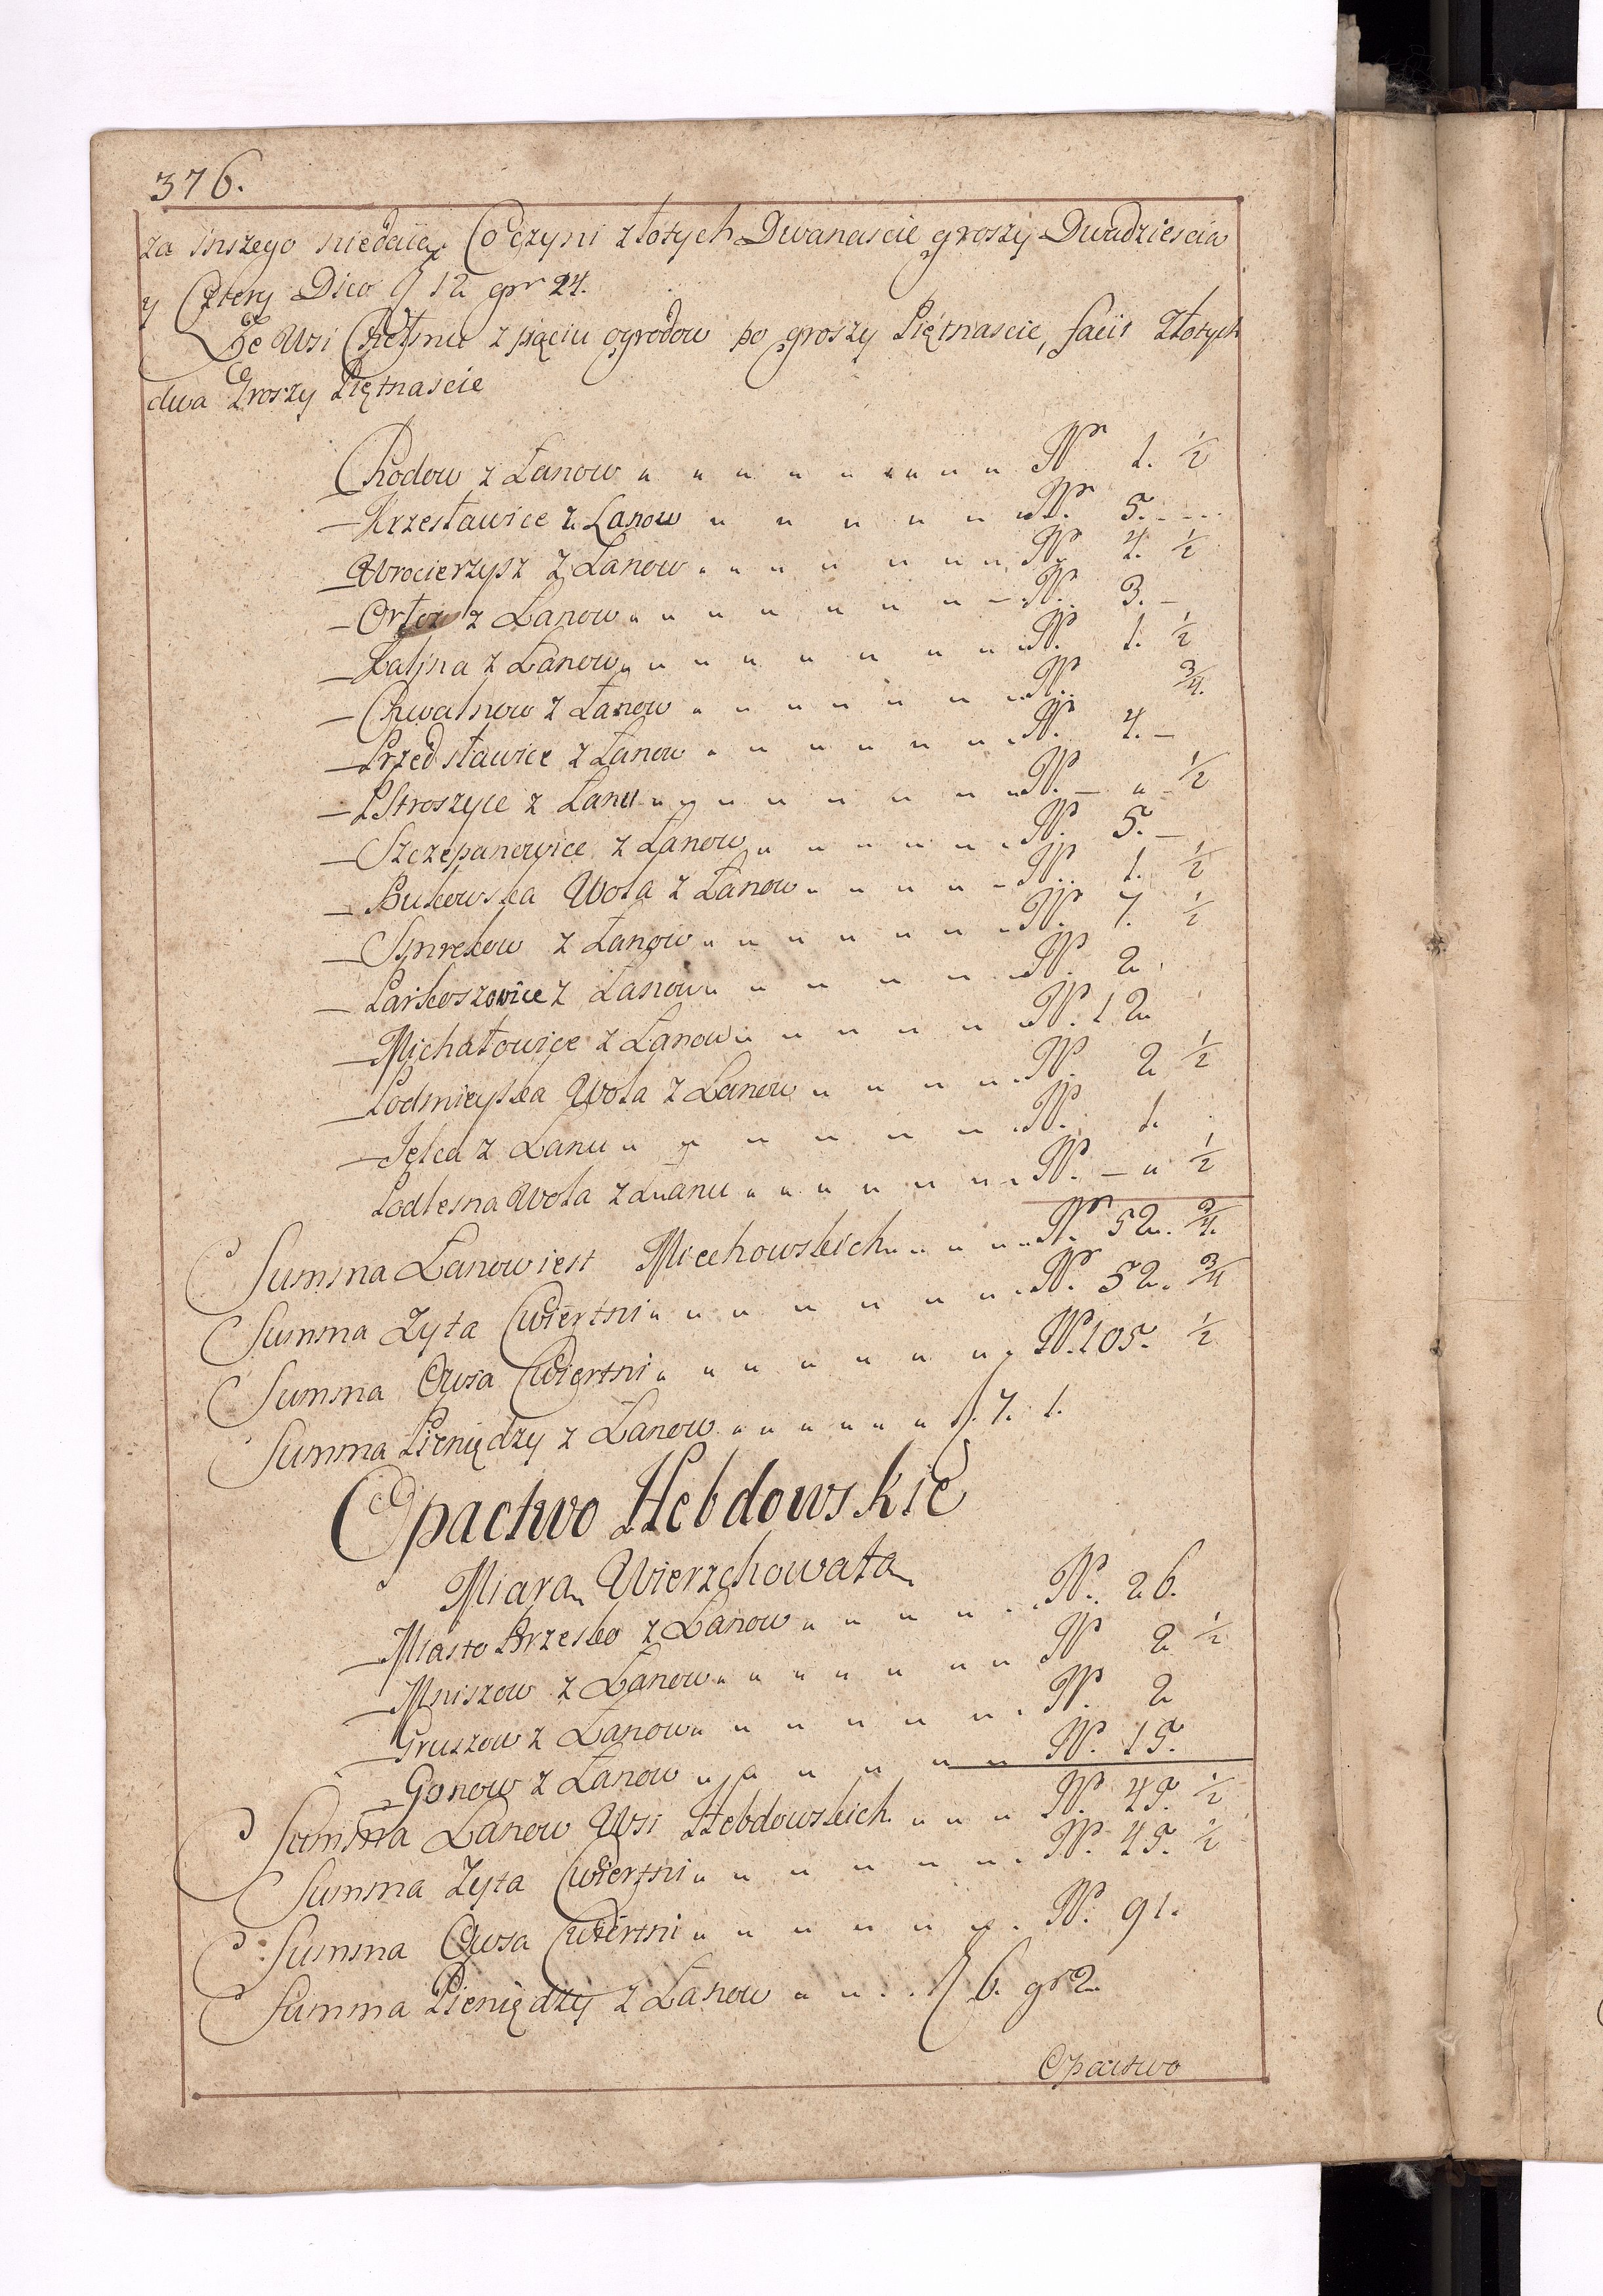 376.
za inszego niedaią. Co czyni złotych Dwanascie groszy Dwadziescia
y Cztery Dico f 12 gr 24.
Ze Wsi Chełmu z pąciu ogrodow po groszy Piętnascie, facit Złotych
dwa Groszy Piętnascie
Chodow z Łanow " " " " " " " " Nr 1. ½
— Krzesławice z Łanow " " " " " Nr. 5. - - -
— Wrocierzysz z Łanow " " " " " " " N. 4. ½
— Orłow z Łanow " " " " " " " — N. 3. —
— Kalina z Łanow " " " " " " " " N. 1. ½
— Chwalnow z Łanow " " " " " " N. ¾.
— Przedsławice z Łanow " " " " " " N. 4. —
— Pstroszyce z Łanu " " " " " " " N. — " - ½
— Szczepanowice z Łanow " " " " " N. 5. —
— Bukowska Wola z Łanow " " " " - N. 1. ½
— Smrekow z Łanow " " " " " " " N. 7. ½
— Parkoszowice z Łanow " " " " " " N. 2.
— Michałowice z Łanow " " " " " " N. 12
— Podmieyska Wola z Łanow " " " " N. 2 ½
— Jelca z Łanu " " " " " " " N. 1.
Podlesna Wola z Łanu " " " " " " " N. — " ½
Summa Łanow iest Miechowskich " " " " " Nr. 52. ¾.
Summa Zyta Cwiertni " " " " " " " N. 52. ¾
Summa Owsa Cwiertni " " " " " " " N. 105. ½
Summa Pieniędzy z Łanow " " " " " " f. 7. 1.
Opactwo Hebdowskie
Miara Wierzchowata
— Miasto Brzesko z Łanow " " " " . . N. 26.
— Mniszow z Łanow " " " " " " " N. 2 ½
— Gruszow z Łanow " " " " " " . N. 2
— Gonow z Łanow " " " " " " N. 15.
Summa Łanow Wsi Hebdowskich " " " N. 45. ½
Summa Zyta Cwiertni " " " " " " . N. 45. ½
Summa Owsa Cwiertni " " " " " " . N. 91.
Summa Pieniędzy z Łanow " " . . f 6. gr 2
Opactwo